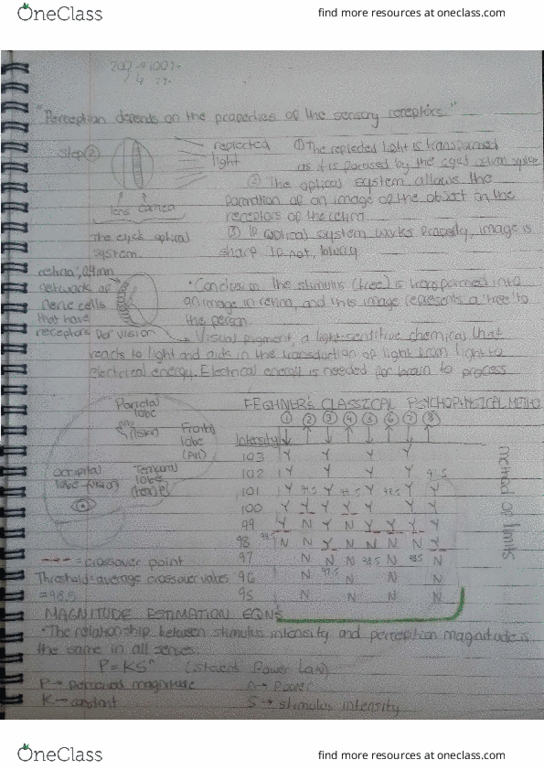 OneClass find more resources at oneclass.com
"Perception depends on the properties of the sensory receptors."
Step ② reflected light
① The reflected light is transformed
as it is focused by the eye's optical
② The optical system allows the
formation of an image of the object on the
receptors of the retina
lens cornea
The eye's optical system.
③ If optical system works properly, image is
sharp. If not, blurry
retina: 0.4mm
network of
nerve cells
that have
receptors for vision
• Conclusion the stimulus (tree) is transformed into
an image in retina, and this image represents a 'tree' to
the person
→ Visual pigment, a light-sensitive chemical that
reacts to light and aids in the transduction of light from light to
electrical energy. Electrical energy is needed for brain to process
Parietal
lobe
(skin)
Frontal
lobe
Occipital
lobe (vision)
Temporal
lobe
FECHNER'S CLASSICAL PSYCHOPHYSICAL METHO
① ② ③ ④ ⑤ ⑥ ⑦ ⑧
Intensity
103 Y Y Y Y
102 Y Y Y Y
101 Y Y Y Y
100 Y Y Y Y Y Y
99 Y N Y N Y Y Y Y
98 N N Y N N N N Y
97 N N N N N
96 N N N N
95 N N N N
method of limits
--- = crossover point
Threshold = average crossover values
= 98.5
MAGNITUDE ESTIMATION EQNS
• The relationship between stimulus intensity and perception magnitude is
the same in all senses:
P = KSⁿ (Steven's Power Law)
P → perceived magnitude n → power
K → constant S → stimulus intensity
OneClass find more resources at oneclass.com